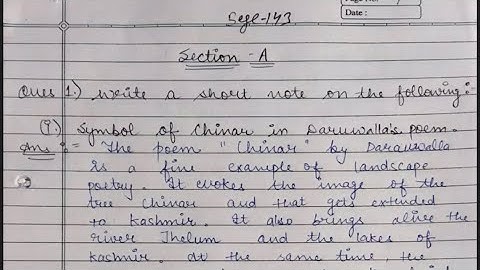 Page No.
Date :
Segl-143
Section - A
Ques 1.) Write a short note on the following :-
(i.) Symbol of Chinar in Daruwalla's poem.
Ans :- "The poem "Chinar" by Darauwalla
is a fine example of landscape
poetry. It evokes the image of the
tree Chinar and that gets extended
to Kashmir. It also brings alive the
river Jhelum and the lakes of
Kashmir. At the same time, the